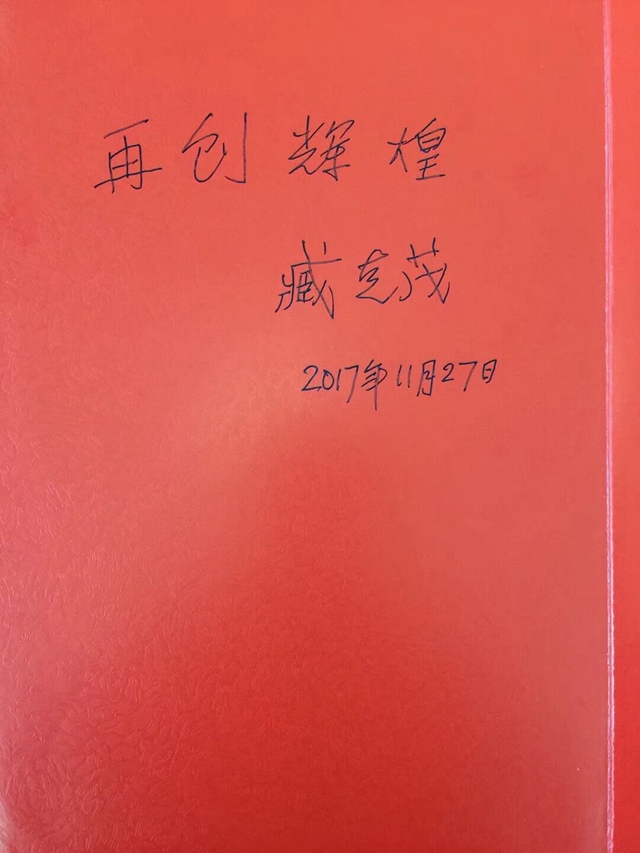 再创辉煌
臧克茂
2017年11月27日